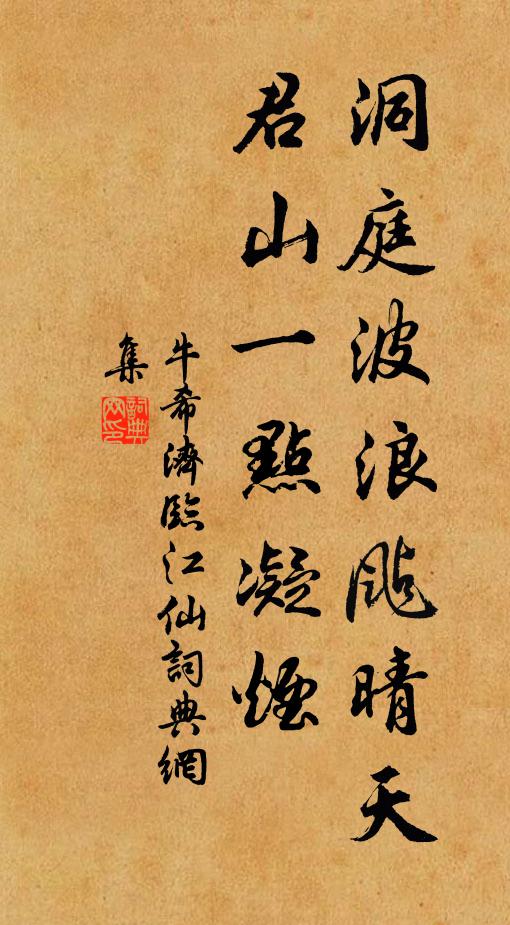 洞庭波浪颭晴天
君山一點凝煙
牛希濟臨江仙詞典網
集
詞典網印